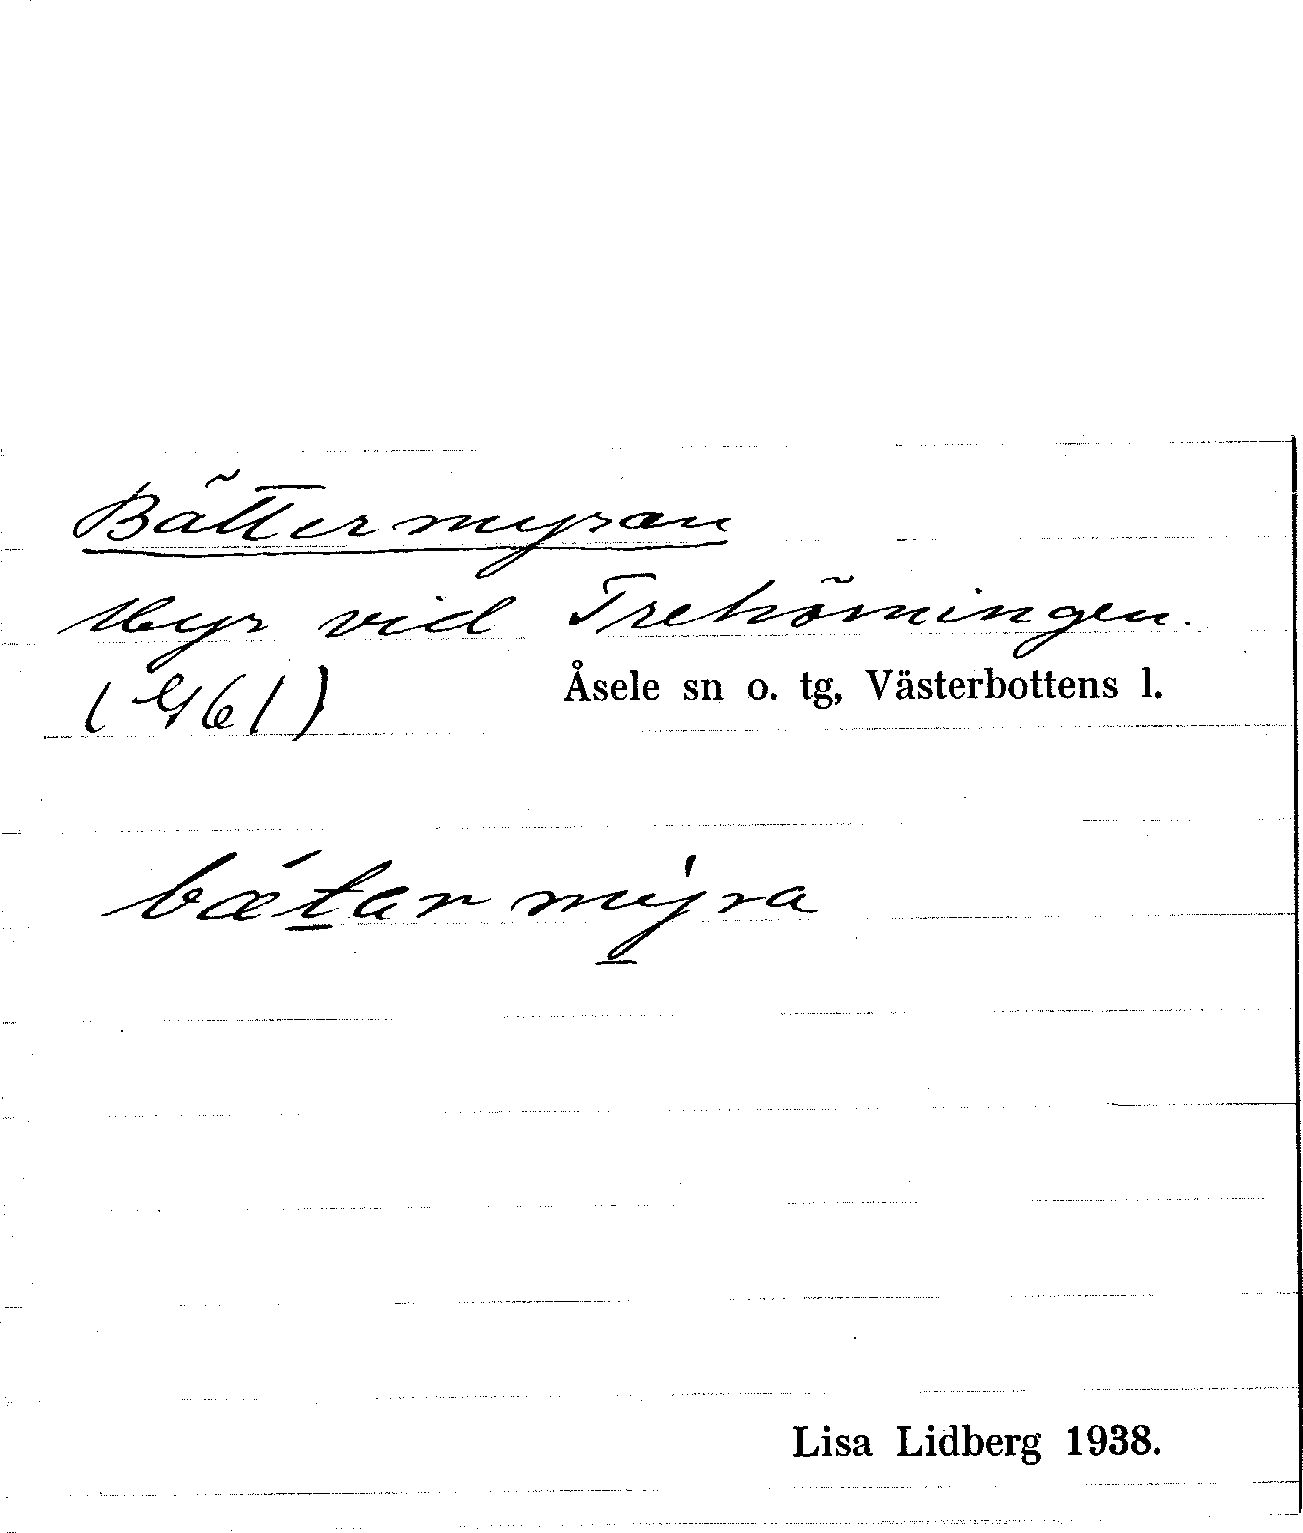 Bättermyran
Myr vid Trehörningen.
(G61) Åsele sn o. tg, Västerbottens l.
bætarmyra
Lisa Lidberg 1938.